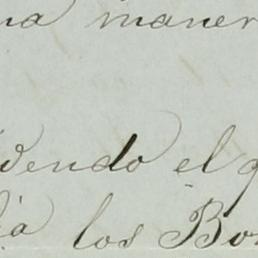 na maner
endo el q
a los Bo